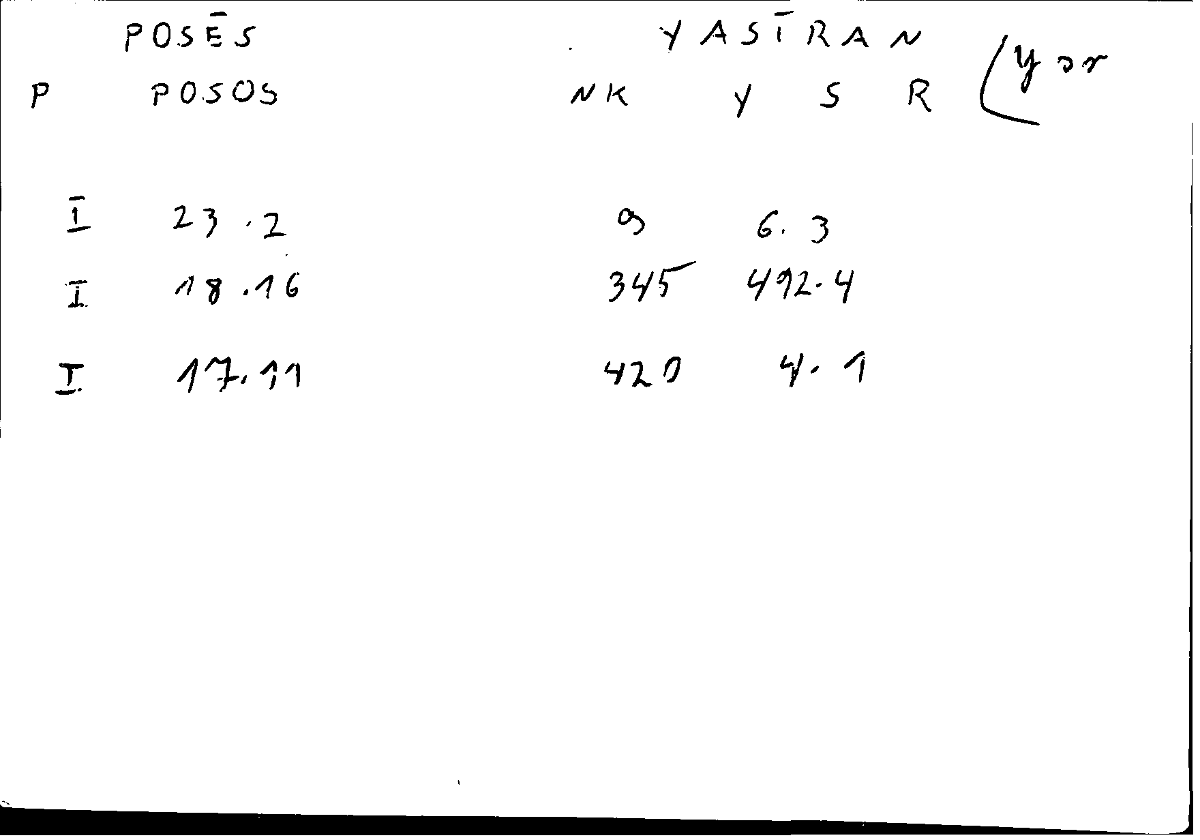 POSĒS YASĪRAN
P POSOS NK Y S R (yər
I 23.2 9 6.3
I 18.16 345 492.4
I 17.11 420 4.1